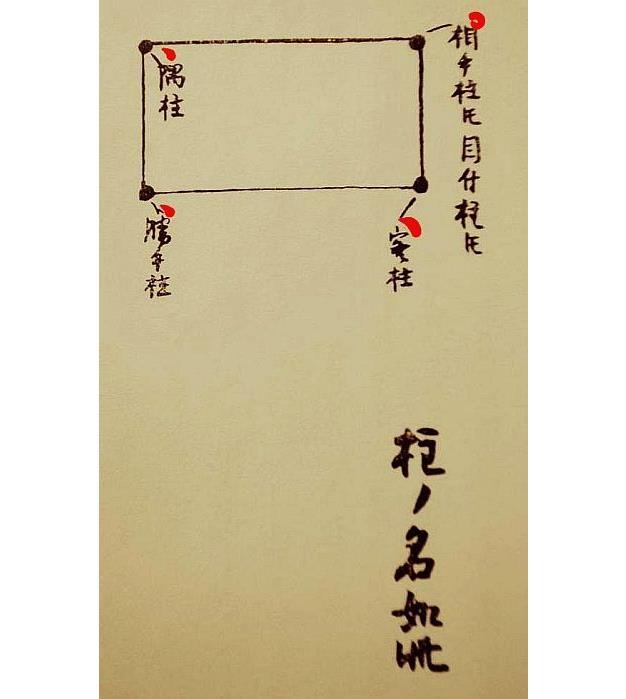 相手柱𪜈目付柱𪜈
隅柱
客柱
勝手柱
柱ノ名如此